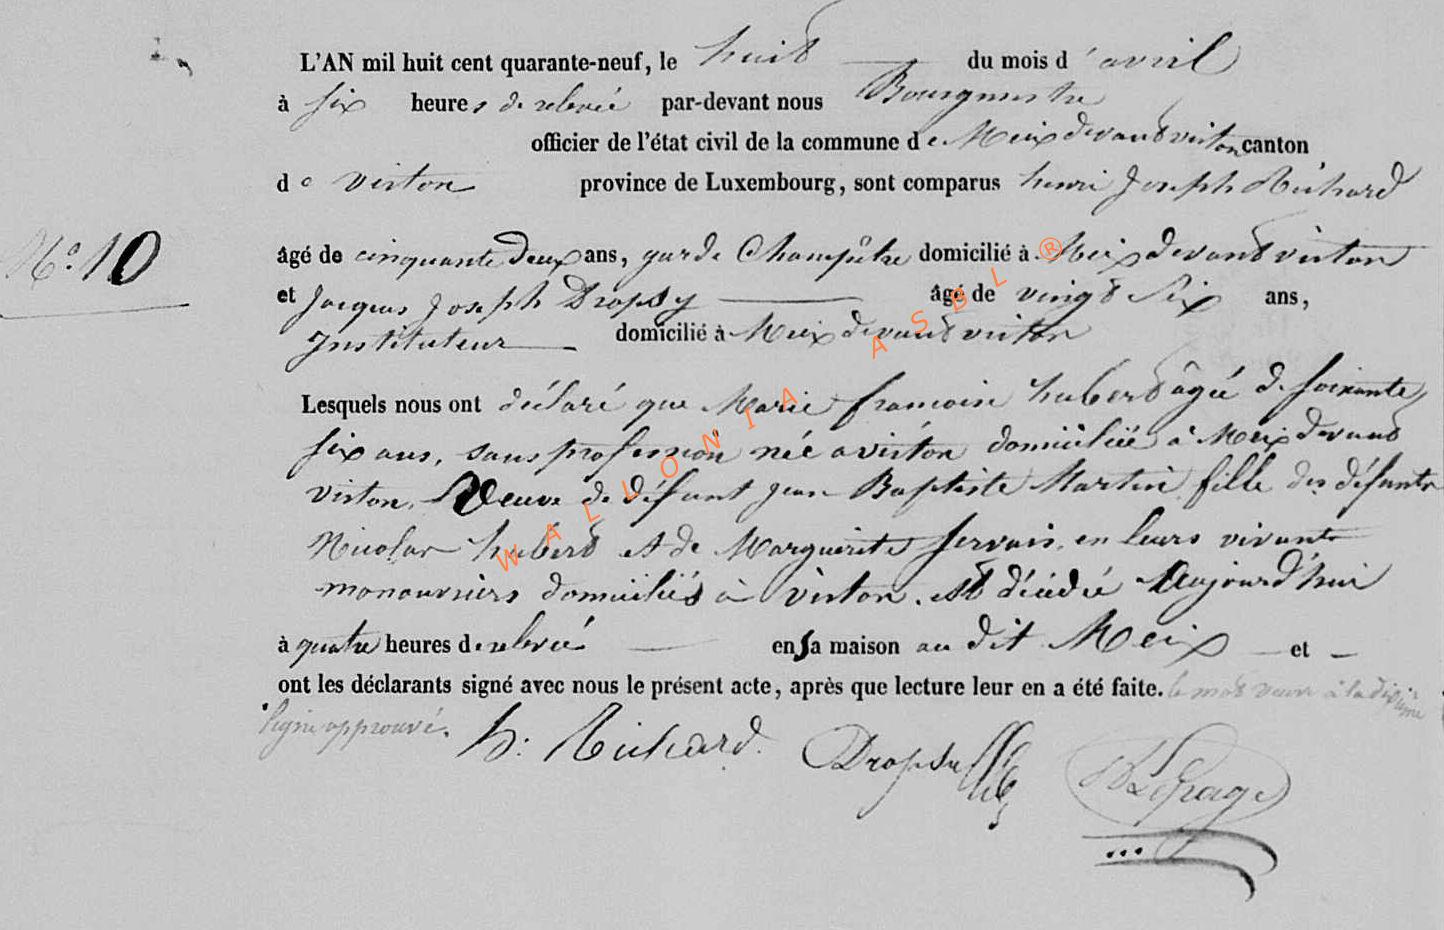 L'AN mil huit cent quarante-neuf, le huit du mois d'avril
à six heures de relevée par-devant nous Bourgmestre
officier de l'état civil de la commune de Meix devant virton canton
de virton province de Luxembourg, sont comparus henri Joseph Richard
N° 10
âgé de cinquante deux ans, garde Champêtre domicilié à Meix devant virton
et Jacques Joseph Dropsy âgé de vingt six ans,
Instituteur domicilié à Meix devant virton
Lesquels nous ont déclaré que Marie francoise hubert âgée de soixante
six ans, sans profession née a virton domiciliée à Meix devant
virton, Veuve de défunt jean Baptiste Martin fille des défunts
Nicolas hubert et de Marguerite servais, en leurs vivants
manouvriers domiciliés à virton. est décédée Aujourd'hui
à quatre heures de relevée en sa maison au dit Meix et
ont les déclarants signé avec nous le présent acte, après que lecture leur en a été faite. le mot veuve à la dixième
ligne approuvé.
h: Richard. Dropsy Lepage
WALLONIA ASBL ®